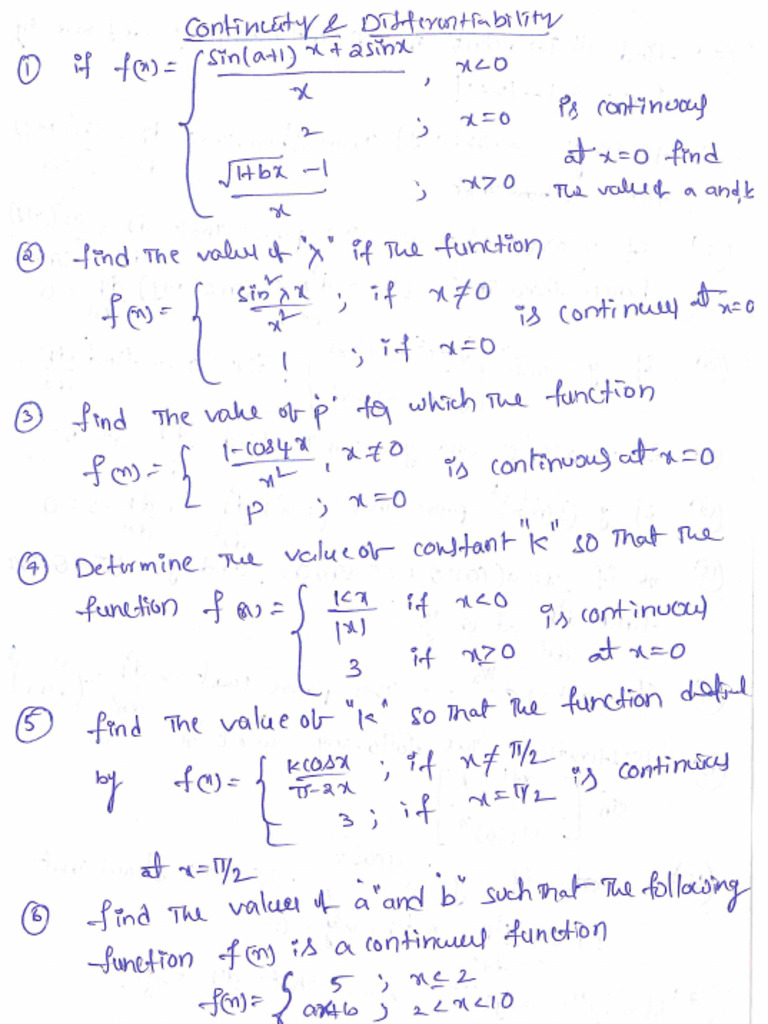 Continuity & Differentiability
① if f(x) = { sin(a+1)x + 2sinx / x , x<0
2 ; x=0 is continuous
at x=0 find
√1+bx - 1 / x ; x>0 The value of a and b
② find The value of "λ" if The function
f(x) = { sin²λx / x² ; if x≠0 is continuous at x=0
1 ; if x=0
③ find The value of 'p' for which The function
f(x) = { 1-cos4x / x² , x≠0 is continuous at x=0
p ; x=0
④ Determine The value of constant "K" so That The
function f(x) = { Kx / |x| if x<0 is continuous
3 if x≥0 at x=0
⑤ find The value of "K" so That The function defined
by f(x) = { kcosx / π-2x ; if x≠π/2 is continuous
3 ; if x=π/2
at x=π/2
⑥ find The values of "a" and "b" such That The following
function f(x) is a continuous function
f(x) = { 5 ; x≤2
ax+b ; 2<x<10